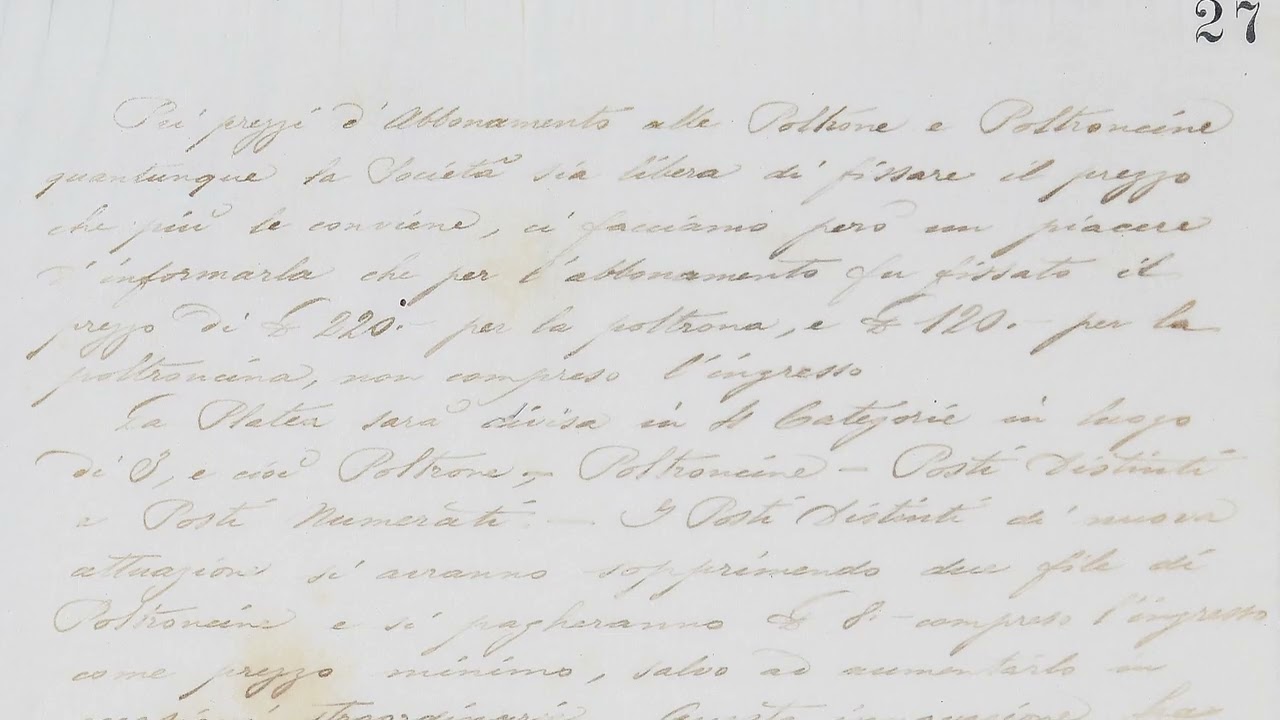 27
Pei prezzi d'Abbonamento alle Poltrone e Poltroncine
quantunque la Società sia libera di fissare il prezzo
che più le conviene, ci facciamo però un piacere
d'informarla che per l'abbonamento fu fissato il
prezzo di £ 220.- per la poltrona, e £ 120.- per la
poltroncina, non compreso l'ingresso
La Platea sarà divisa in 4 Categorie in luogo
di 3, e cioè Poltrone, - Poltroncine - Posti Distinti
e Posti Numerati. - I Posti Distinti di nuova
attuazione si avranno sopprimendo due file di
Poltroncine e si pagheranno £ 8.- compreso l'ingresso
come prezzo minimo, salvo ad aumentarlo in
straordinarie. Questa innovazione